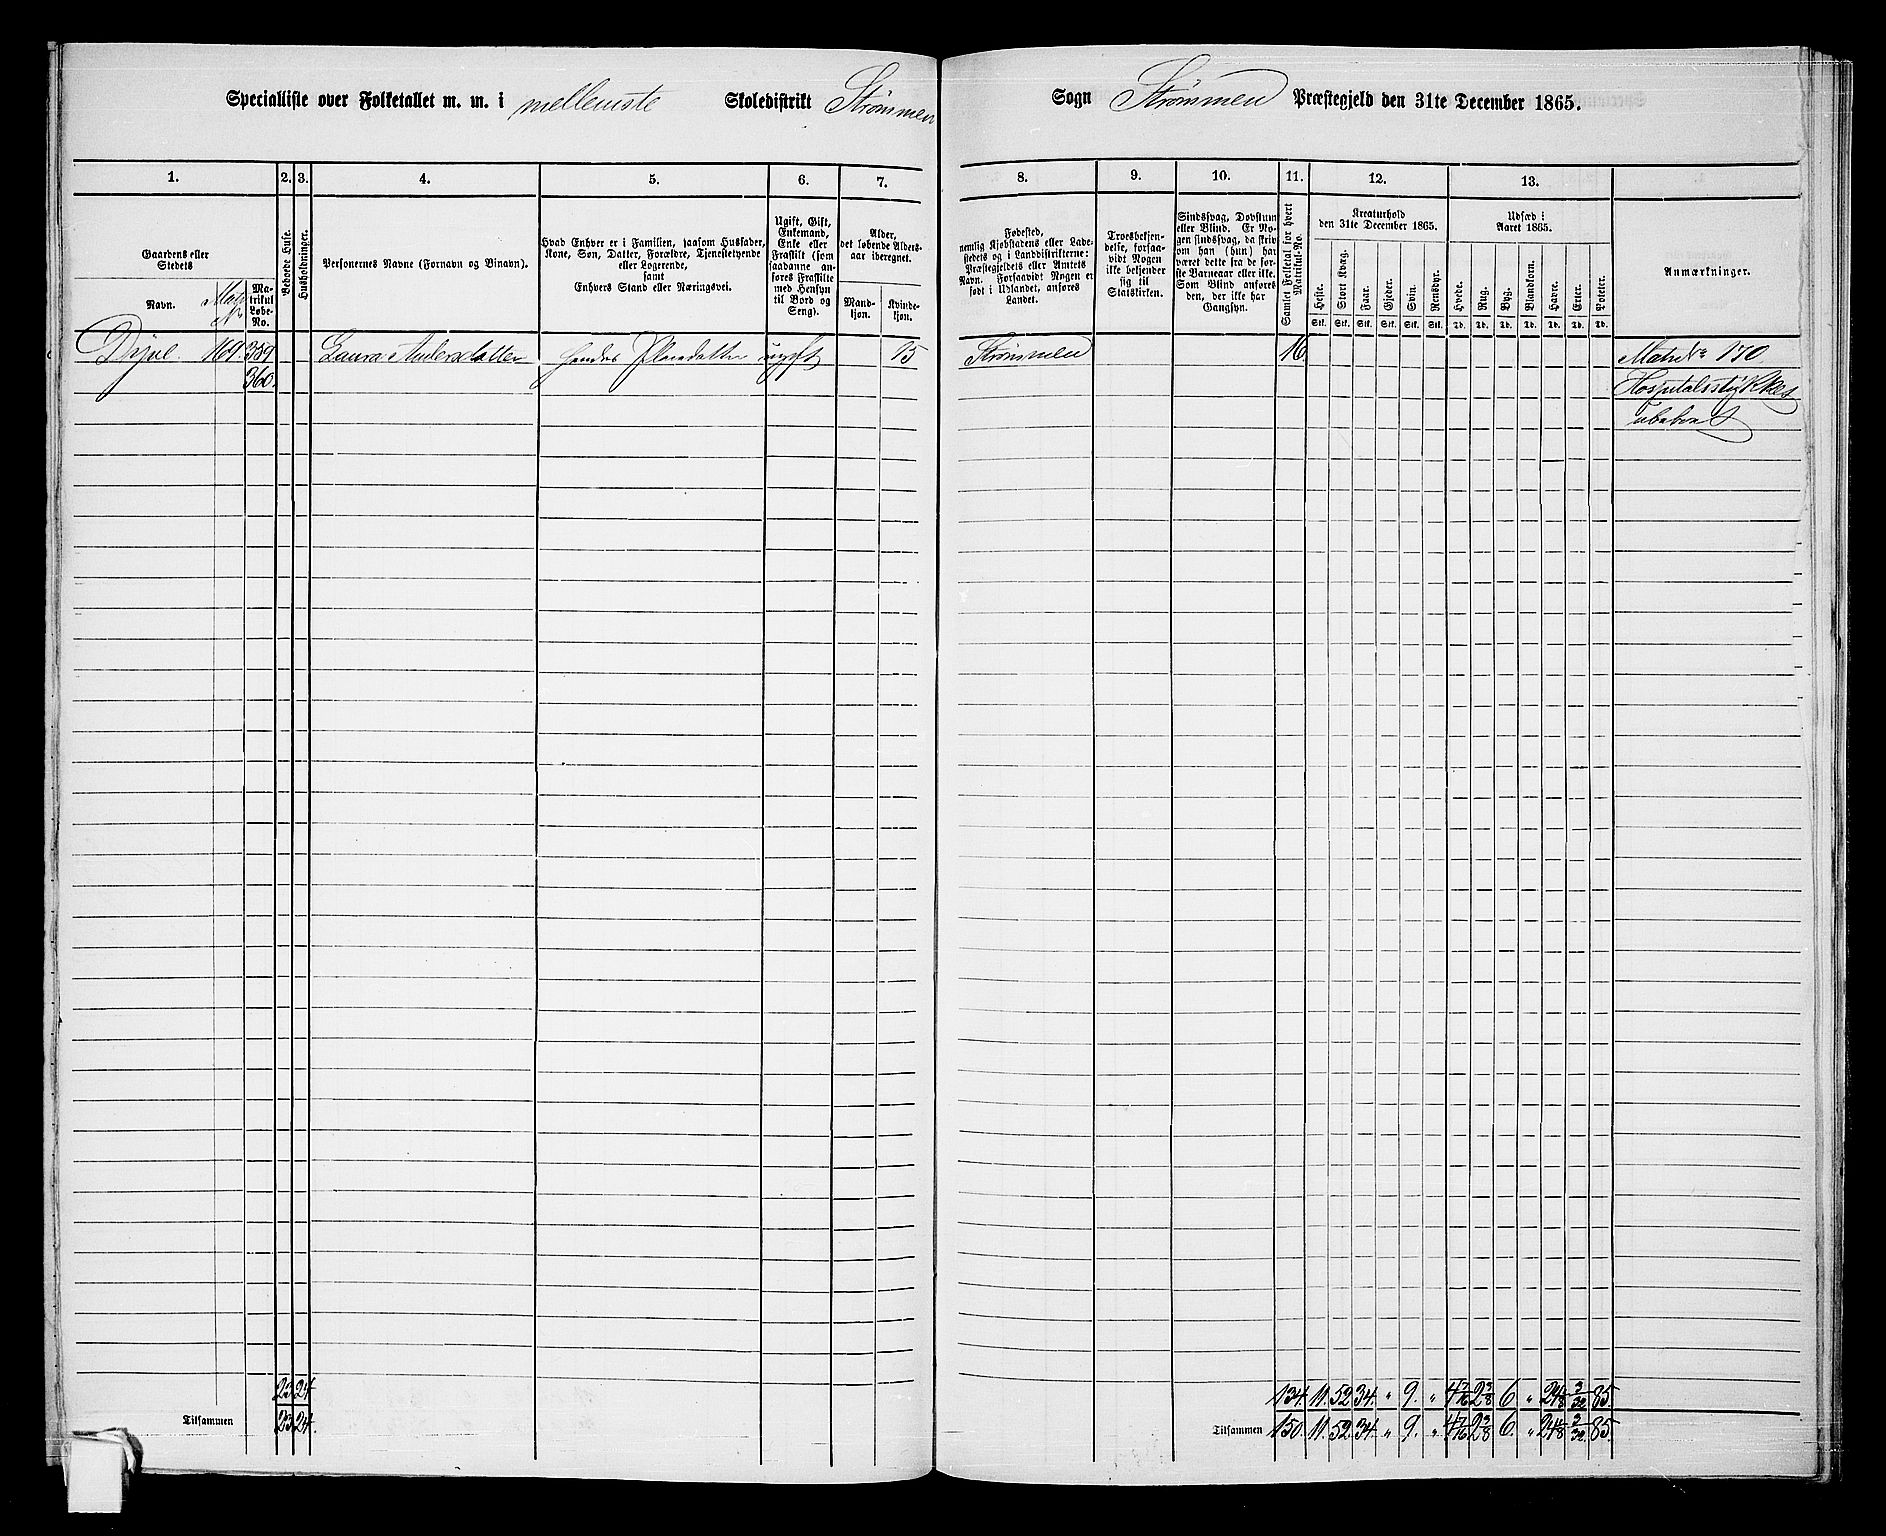 Specialliste over Folketallet m. m. i mellemste Skoledistrikt Strømmen Sogn Strømmen Præstegjeld den 31te December 1865.
1. 2. 3. 4. 5. 6. 7. 8. 9. 10. 11. 12. 13.
Gaardens eller Stedets
Navn.
Matr No
Matrikul Løbe-No.
Beboede Huse.
Husholdninger.
Personernes Navne (Fornavn og Binavn).
Hvad Enhver er i Familien, saasom Husfader,
Kone, Søn, Datter, Forældre, Tjenestetyende
eller Logerende,
samt
Enhvers Stand eller Næringsvei.
Ugift, Gift,
Enkemand,
Enke eller
Fraskilt (som
saadanne an-
føres Fraskilte
med Hensyn
til Bord og
Seng).
Alder,
det løbende Alders-
aar iberegnet.
Mand-
kjøn.
Kvinde-
kjøn.
Fødested,
nemlig Kjøbstadens eller Lade-
stedets og i Landdistrikterne:
Præstegjeldets eller Amtets
Navn. Forsaavidt Nogen er
født i Udlandet, anføres
Landet.
Troesbekjen-
delse, forsaa-
vidt Nogen
ikke bekjender
sig til
Statskirken.
Sindssvag, Døvstum
eller Blind. Er No-
gen sindssvag, da skriv
om han (hun) har
været dette fra de før-
ste Barneaar eller ikke.
Som Blind anføres
den, der ikke har
Gangsyn.
Samlet Folketal for hvert
Matrikul-No.
Kreaturhold
den 31te December 1865.
Heste. Stort Kvæg. Faar. Gjeder. Svin. Rensdyr.
Stk. Stk. Stk. Stk. Stk. Stk.
Udsæd i
Aaret 1865.
Hvede. Rug. Byg. Blandkorn. Havre. Erter. Poteter.
Td. Td. Td. Td. Td. Td. Td.
Anmærkninger.
169. 359 Laura Andersdatter hendes Pleiedatter ugift 15 Strømmen 16. Matr No 170
360. Hospitalsstykket
ubeboet
23 24 134. 11. 52 34. " 9. " 4 7/16 2 3/8 6 " 24 1/8 3/32 85.
Tilsammen 23 24. Tilsammen 150. 11. 52. 34. " 9. " 4 7/16 2 3/8 6. " 24 1/8 3/32 85.